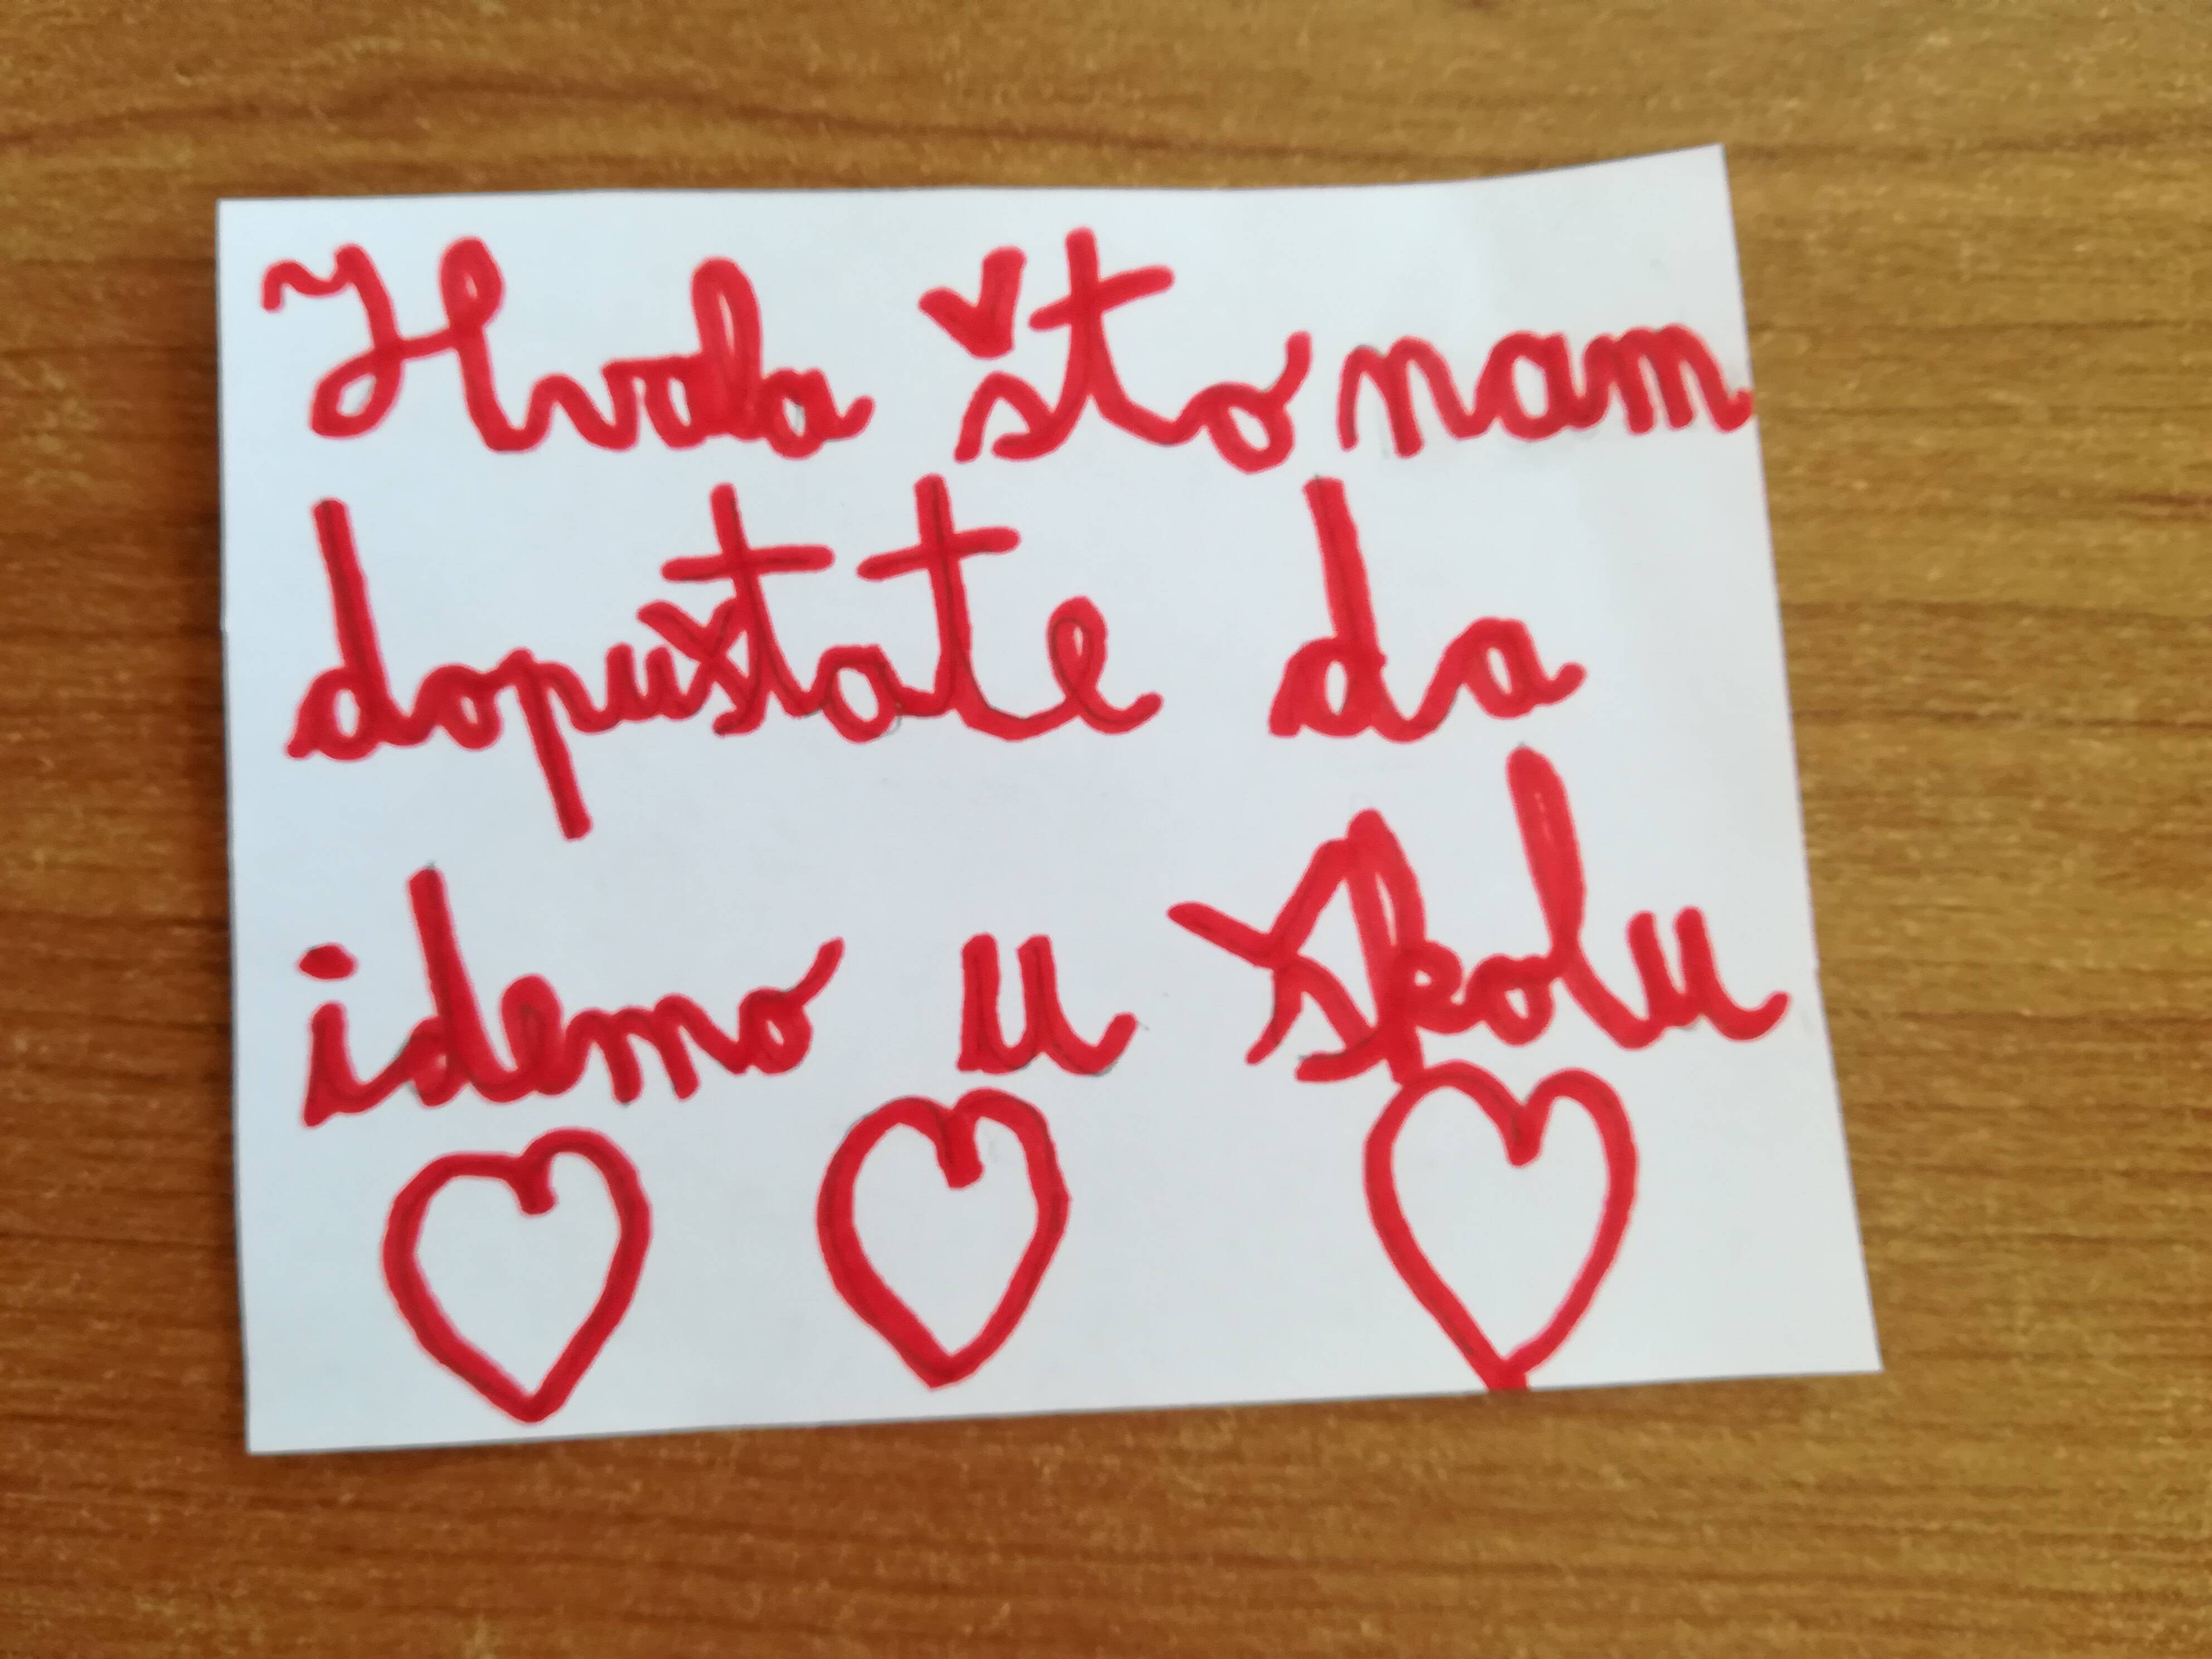 Hvala što nam
dopuštate da
idemo u školu